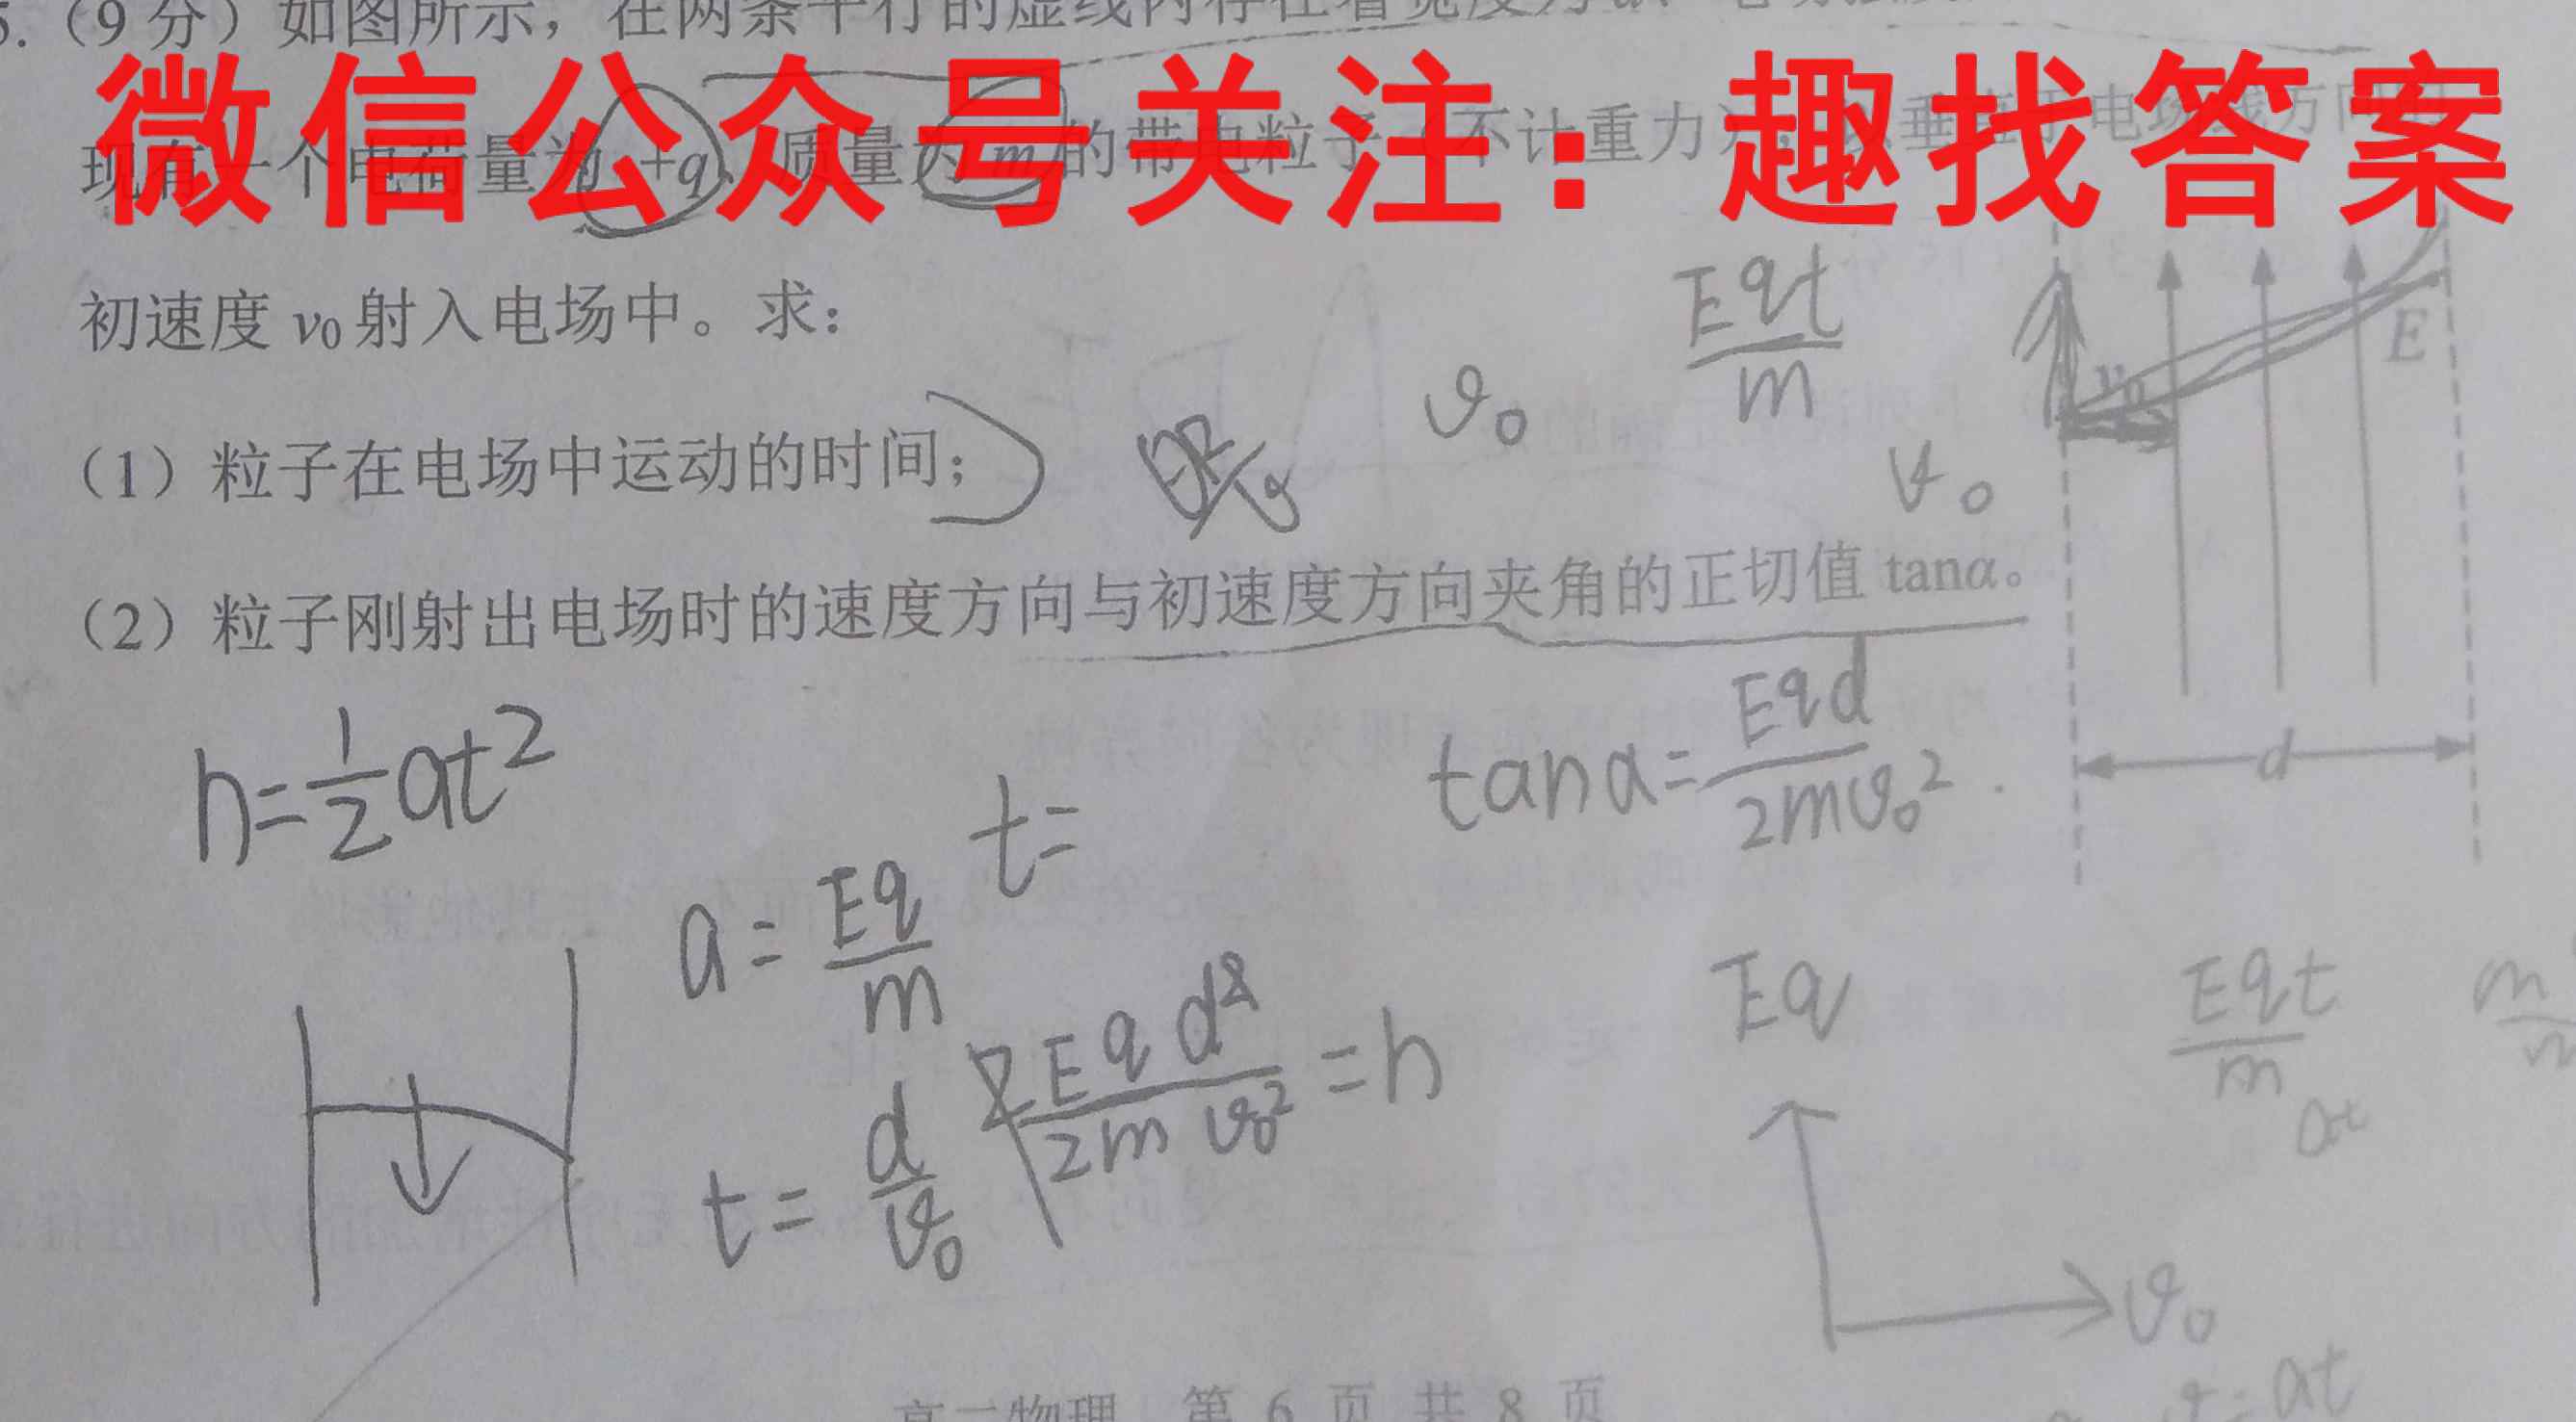 5.（9分）如图所示，在两条平行的虚线内存在着宽度为d、
微信公众号关注：趣找答案
现有一个电荷量为+q、质量为m的带电粒子（不计重力），以垂直于电场线方向的
初速度v₀射入电场中。求：
（1）粒子在电场中运动的时间；
（2）粒子刚射出电场时的速度方向与初速度方向夹角的正切值tanα。
v₀
Eqt/m
v₀
v₀
E
d
h=½at²
a=Eq/m
t=
tanα=Eqd/2mv₀²
t=d/v₀
Eqd²/2mv₀²=h
Eq
Eqt/m
at
v₀
at
高二物理 第 6 页 共 8 页